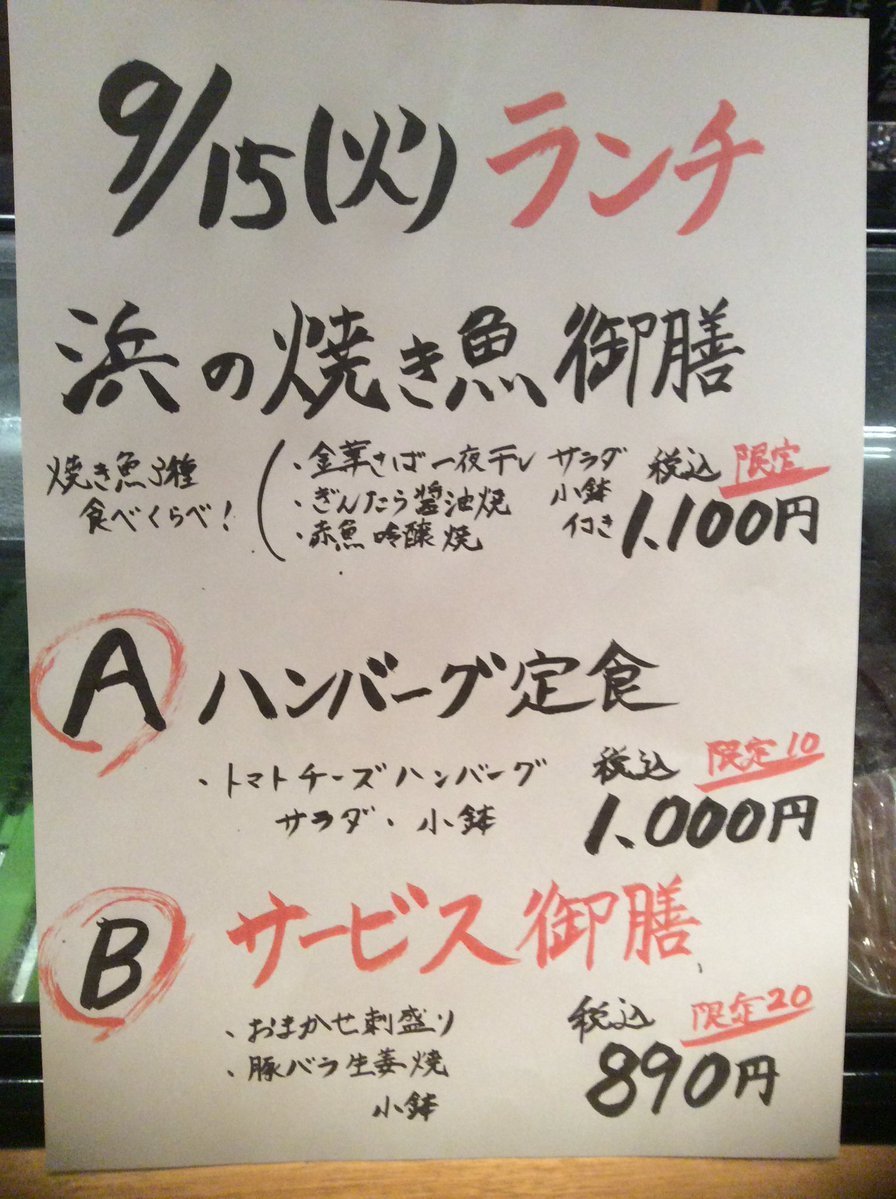 9/15(火) ランチ
浜の焼き魚御膳
焼き魚3種
食べくらべ!
・金華さば一夜干し
・ぎんたら醤油焼
・赤魚吟醸焼
サラダ
小鉢
付き
税込 限定
1,100円
A ハンバーグ定食
・トマトチーズハンバーグ
サラダ・小鉢
税込 限定10
1,000円
B サービス御膳
・おまかせ刺盛り
・豚バラ生姜焼
小鉢
税込 限定20
890円